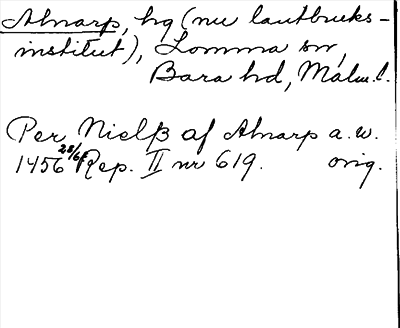 Alnarp, hg (nu lantbruks-
institut), Lomma sn,
Bara hd, Malm. l.
Per Nielß af Alnarp a. w.
1456 28/6 Rep. II nr 619. orig.